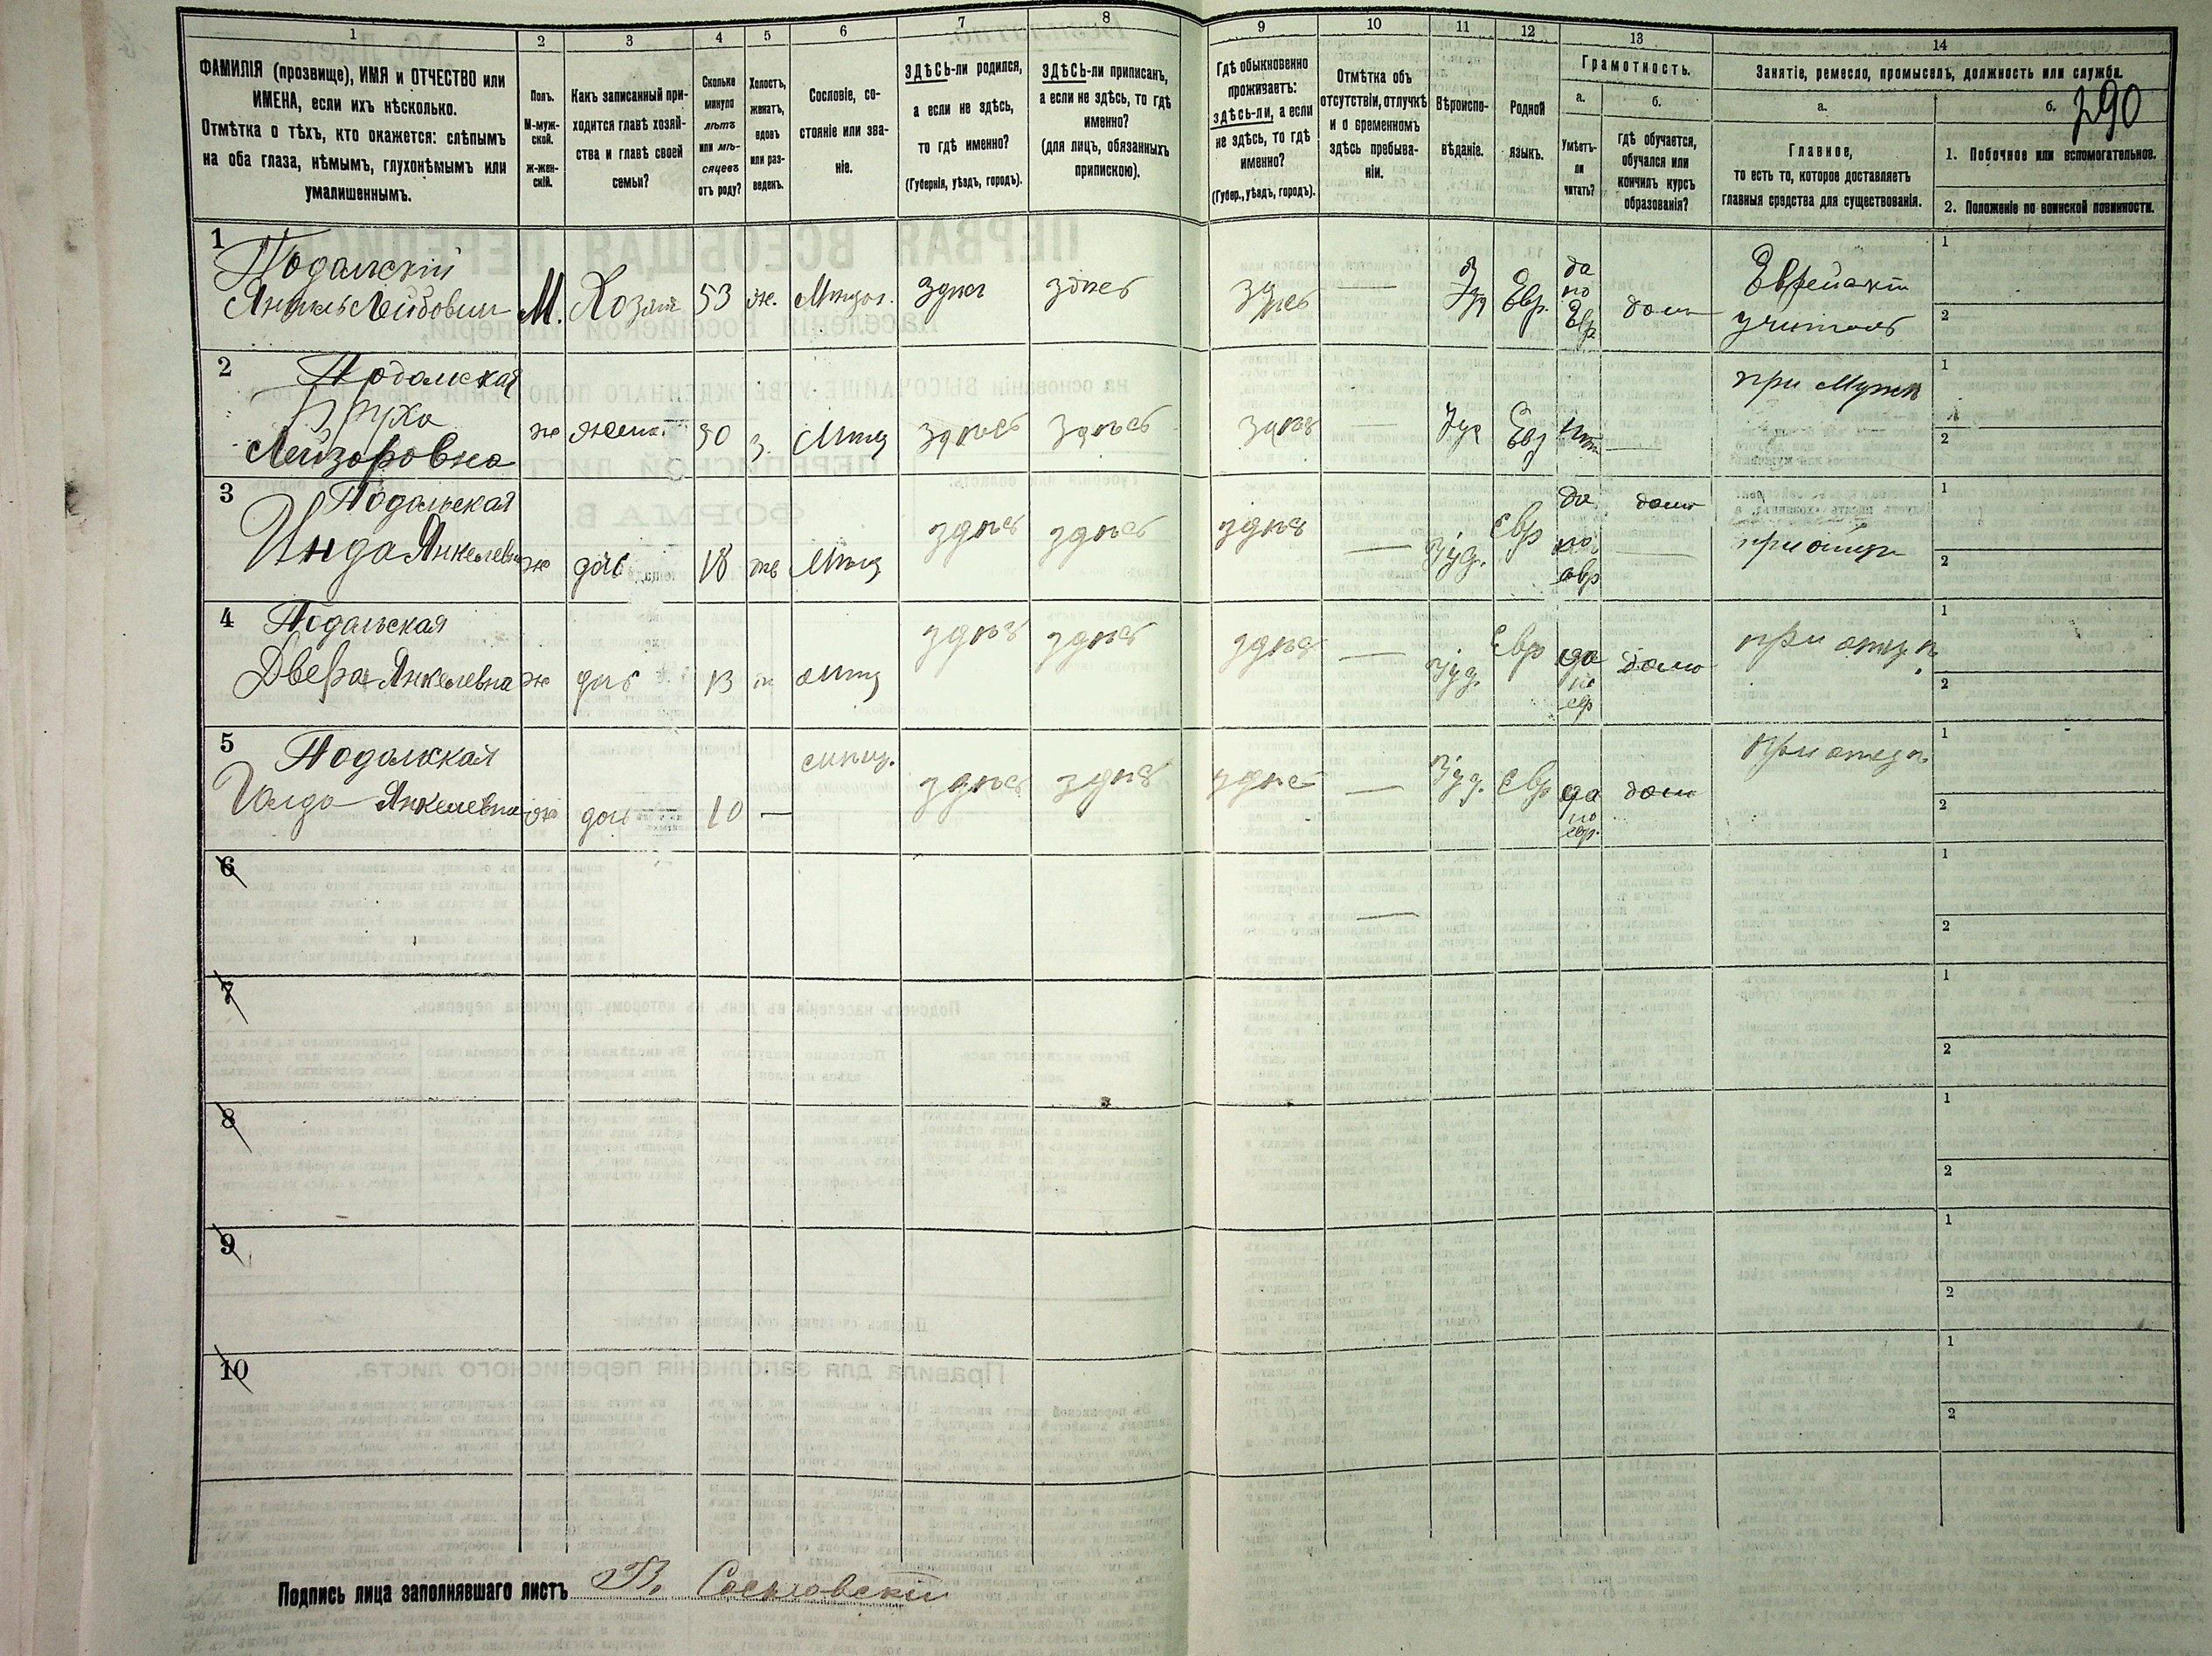 1
2
3
4
5
6
7
8
9
10
11
12
13
14
ФАМИЛІЯ (прозвище), ИМЯ и ОТЧЕСТВО или
ИМЕНА, если ихъ нѣсколько.
Отмѣтка о тѣхъ, кто окажется: слѣпымъ
на оба глаза, нѣмымъ, глухонѣмымъ или
умалишеннымъ.
Полъ.
М-муж-
ской.
ж-жен-
скій.
Какъ записанный при-
ходится главѣ хозяй-
ства и главѣ своей
семьи?
Сколько
минуло
лѣтъ
или мѣ-
сяцевъ
отъ роду?
Холостъ,
женатъ,
вдовъ
или раз-
веденъ.
Сословіе, со-
стояніе или зва-
ніе.
ЗДѢСЬ-ли родился,
а если не здѣсь,
то гдѣ именно?
(Губернія, уѣздъ, городъ).
ЗДѢСЬ-ли приписанъ,
а если не здѣсь, то гдѣ
именно?
(для лицъ, обязанныхъ
припискою).
Гдѣ обыкновенно
проживаетъ:
здѣсь-ли, а если
не здѣсь, то гдѣ
именно?
(Губер., уѣздъ, городъ).
Отмѣтка объ
отсутствіи, отлучкѣ
и о временномъ
здѣсь пребыва-
ніи.
Вѣроиспо-
вѣданіе.
Родной
языкъ.
Грамотность.
а.
Умѣетъ-
ли
читать?
б.
гдѣ обучается,
обучался или
кончилъ курсъ
образованія?
Занятіе, ремесло, промыселъ, должность или служба.
а.
Главное,
то есть то, которое доставляетъ
главныя средства для существованія.
б.
290
1. Побочное или вспомогательное.
2. Положеніе по воинской повинности.
1
Подальскій
Янкель Лейбовичъ
М.
Хозяинъ
53
же.
здѣсь
здѣсь
здѣсь
—
Іуд
Евр.
да
по
Евр
дома
Еврейскій
учитель
1
2
2
Подольская
Лейзоровна
ж
жена
50
з.
Мѣщ
здѣсь
здѣсь
здѣсь
—
Іуд
Евр
нѣтъ
—
при мужѣ
1
2
3
Подальская
Инда Янкелевна
ж
дочь
18
Мѣщ
здѣсь
здѣсь
здѣсь
—
Іуд.
Евр
да
по
евр
дома
при отцѣ
1
2
4
Подальская
Двера Янкелевна
ж
дочь
13
мѣщ
здѣсь
здѣсь
здѣсь
—
Іуд.
Евр
да
по
евр
дома
при отцѣ
1
2
5
Подальская
Голда Янкелевна
ж
дочь
10
—
здѣсь
здѣсь
здѣсь
—
Іуд.
Евр
да
по
евр.
дома
При отцѣ
1
2
6
—
1
2
7
1
2
8
1
2
9
1
2
10
1
2
Подпись лица заполнявшаго листъ